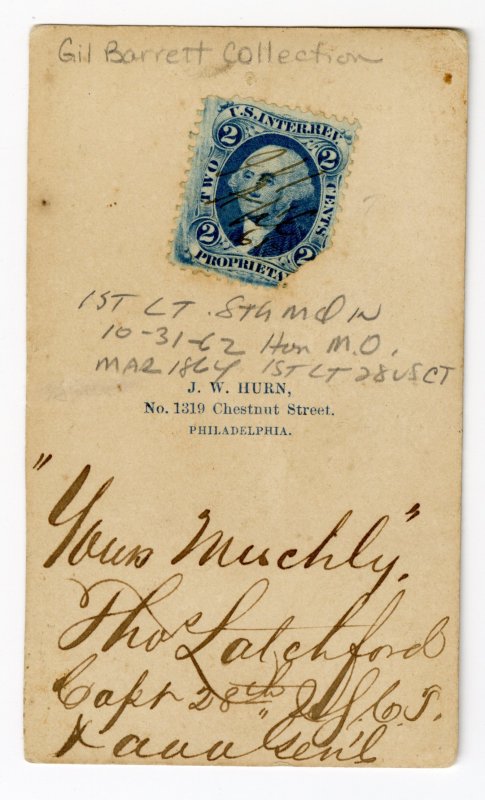 Gil Barrett Collection
U.S. INTER. REV.
2 2
TWO CENTS
2 2
PROPRIETA
1ST LT. 8th MD IN
10-31-62 Hon M.O.
MAR 1864 1ST LT 28 US CT
J. W. HURN,
No. 1319 Chestnut Street.
PHILADELPHIA.
"Yours Muchly",
Thos Latchford
Capt 28th U.S.C.T.
& aaa Gen'l